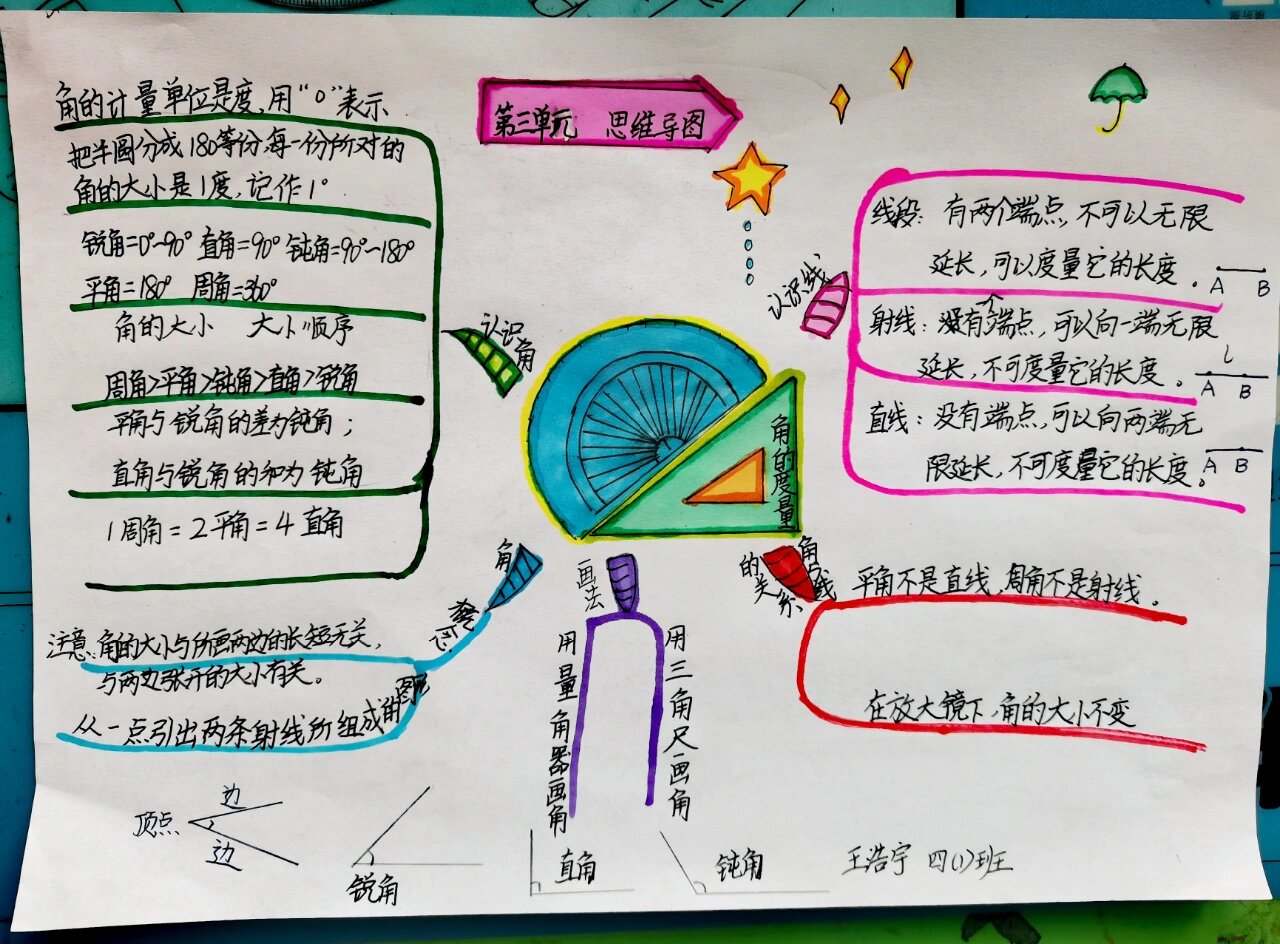 第三单元 思维导图
角的计量单位是度,用“°”表示
把半圆分成180等份,每一份所对的
角的大小是1度,记作1°
锐角=0°~90° 直角=90° 钝角=90°~180°
平角=180° 周角=360°
角的大小 大小顺序
周角>平角>钝角>直角>锐角
平角与锐角的差为钝角;
直角与锐角的和为钝角
1周角=2平角=4直角
认识角
认识线
线段:有两个端点,不可以无限
延长,可以度量它的长度。
A B
射线:没有个端点,可以向一端无限
延长,不可度量它的长度。
l
A B
直线:没有端点,可以向两端无
限延长,不可度量它的长度。
A B
角的度量
角概念
注意:角的大小与所画两边的长短无关,
与两边张开的大小有关。
从一点引出两条射线所组成的图形
画法
用量角器画角
用三角尺画角
角与线的关系
平角不是直线,周角不是射线。
在放大镜下,角的大小不变
顶点
边
边
锐角
直角
钝角
王浩宇 四(1)班